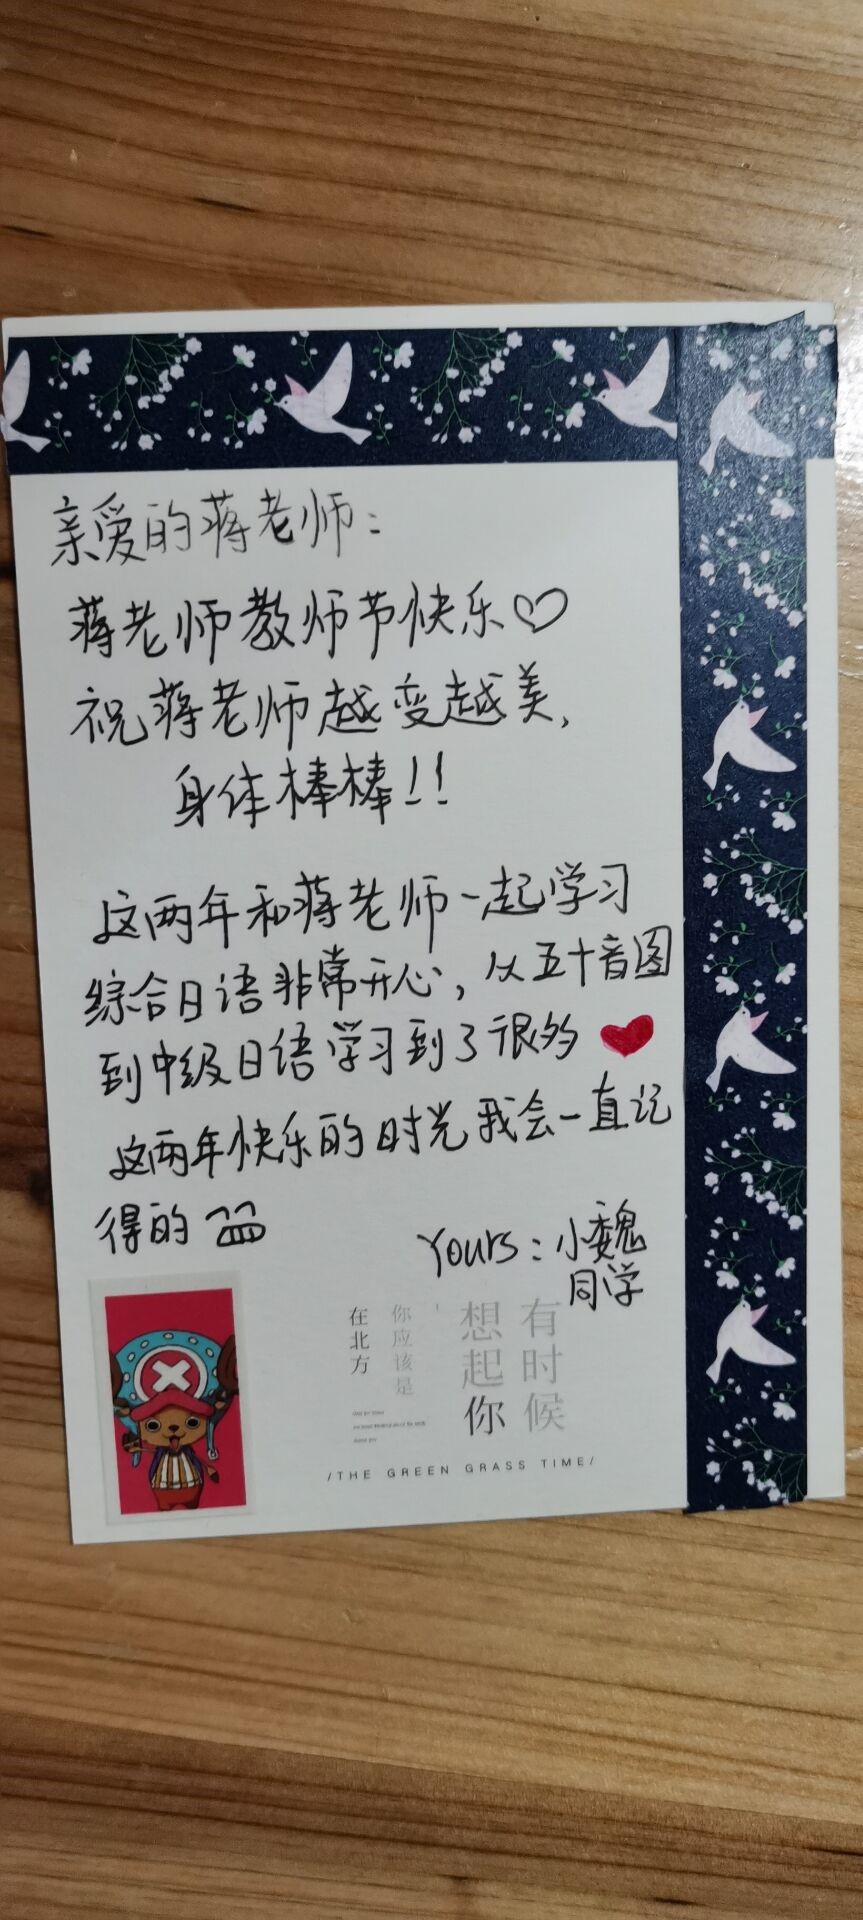 亲爱的蒋老师：
蒋老师教师节快乐♡
祝蒋老师越变越美，
身体棒棒！！
这两年和蒋老师一起学习
综合日语非常开心，从五十音图
到中级日语学习到了很多❤
这两年快乐的时光我会一直记
得的
Yours：小魏
同学
有时候
想起你
，
你应该是
在北方
/THE GREEN GRASS TIME/